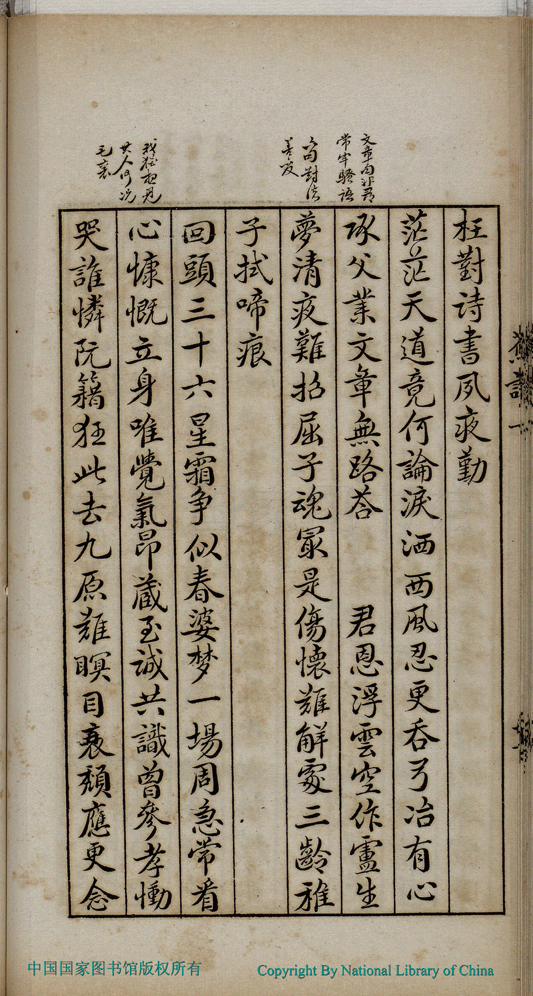 枉對诗書夙夜勤
茫茫天道竟何論淚洒西風忍更吞弓冶有心
承父業文章無路荅　君恩浮雲空作盧生
夢清夜難招屈子魂冣是傷懷難解處三齡稚
子拭啼痕
回頭三十六星霜争似春婆梦一場周急常看
心慷慨立身唯覺氣昂藏至诚共識曾參孝慟
哭誰憐阮籍狂此去九原難瞑目衰頽應更念
中国国家图书馆版权所有
Copyright By National Library of China